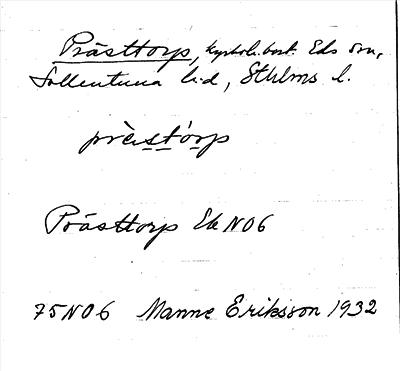 Prästtorp, kyrkoh.bost. Eds sn,
Sollentuna hd, Sthlms l.
prȁstórp
Prästtorp Ek N06
75 N06 Manne Eriksson 1932